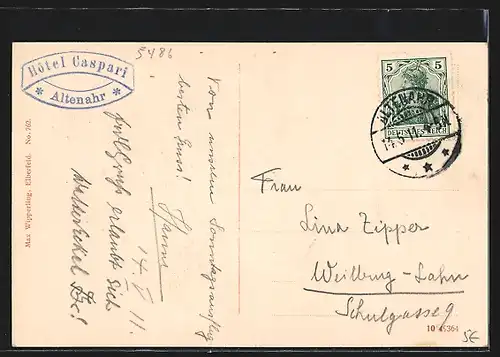 5486
Hôtel Caspari
* Altenahr *
Von unserm Sonntagsausflug
besten Gruss!
Hanna
14. V. 11.
erlaubt sich
Max Wipperling, Elberfeld. No. 762.
5 5
DEUTSCHES REICH
ALTENAHR
14.5.11
Frau
Lina Zipper
Weilburg-Lahn
Schulgasse 9
10 45364
5€